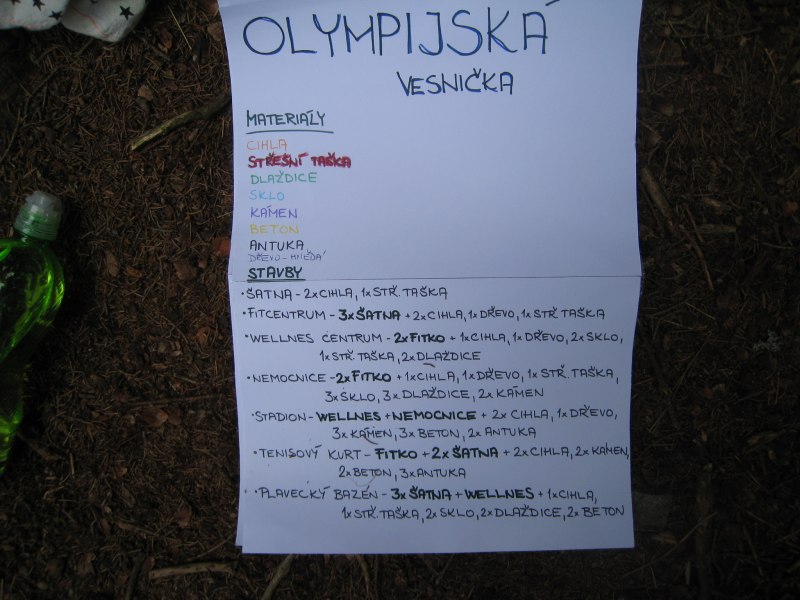 OLYMPIJSKÁ
VESNIČKA
MATERIÁLY
CIHLA
STŘEŠNÍ TAŠKA
DLAŽDICE
SKLO
KÁMEN
BETON
ANTUKA
DŘEVO-HNĚDÁ
STAVBY
•ŠATNA - 2xCIHLA, 1xSTŘ. TAŠKA
•FITCENTRUM - 3xŠATNA + 2xCIHLA, 1xDŘEVO, 1xSTŘ. TAŠKA
•WELLNES CENTRUM - 2xFITKO + 1xCIHLA, 1xDŘEVO, 2xSKLO,
1xSTŘ. TAŠKA, 2xDLAŽDICE
•NEMOCNICE - 2xFITKO + 1xCIHLA, 1xDŘEVO, 1xSTŘ. TAŠKA,
3xSKLO, 3xDLAŽDICE, 2xKÁMEN
•STADION - WELLNES + NEMOCNICE + 2xCIHLA, 1xDŘEVO,
3xKÁMEN, 3xBETON, 2xANTUKA
•TENISOVÝ KURT - FITKO + 2xŠATNA + 2xCIHLA, 2xKÁMEN,
2xBETON, 3xANTUKA
•PLAVECKÝ BAZÉN - 3xŠATNA + WELLNES + 1xCIHLA,
1xSTŘ. TAŠKA, 2xSKLO, 2xDLAŽDICE, 2xBETON